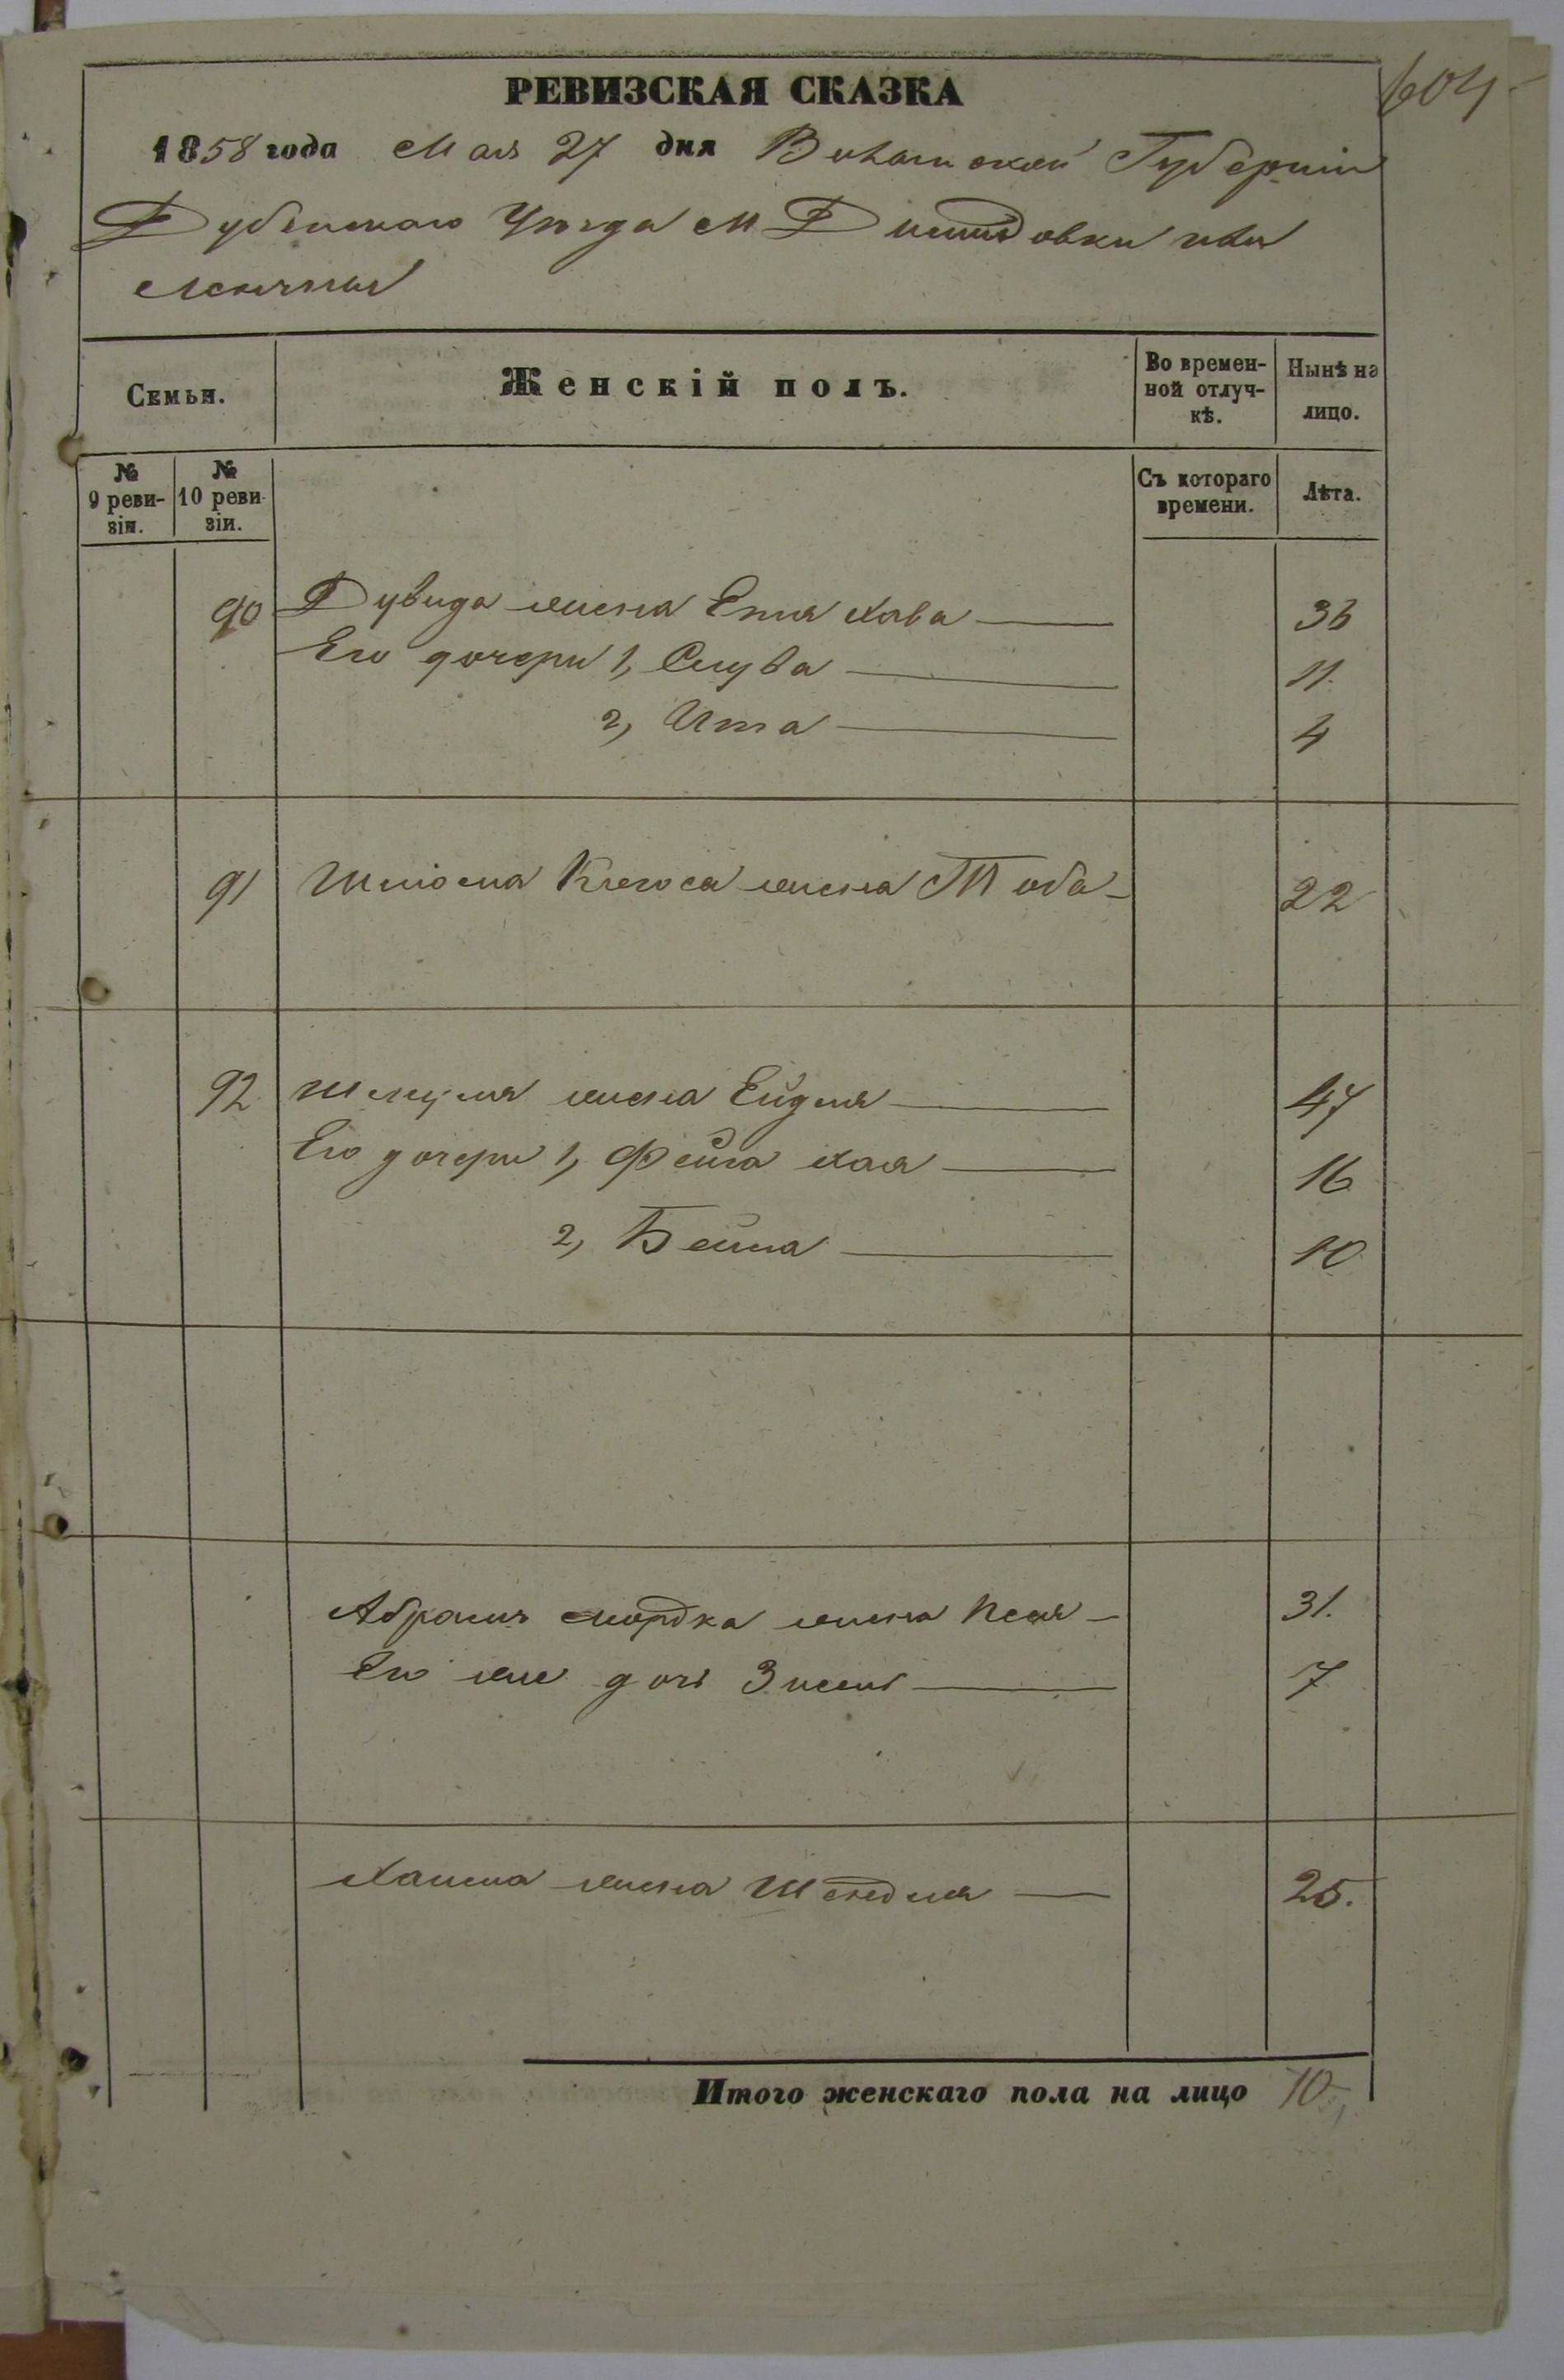 604
РЕВИЗСКАЯ СКАЗКА
1858 года Мая 27 дня Волынской Губерніи
Дубенскаго Уѣзда М Демидовки или
Семьи.
Женскій полъ.
Во времен-
ной отлуч-
кѣ.
Нынѣ на
лицо.
№
9 реви-
зіи.
№
10 реви-
зіи.
Съ котораго
времени.
Лѣта.
90 Дувида жена Етя Хава 36
Его дочери 1, Слува 11.
2, Ита 4
91 Шліома жена Тоба 22
92 Шмуля жена Ейдля 47
Его дочери 1, Фейга Хая 16
2, Бейла 10
Абрамъ Мордка жена Песя 31.
Его же дочь Зисель 7
Хаима жена Шендля 25.
Итого женскаго пола на лицо 10